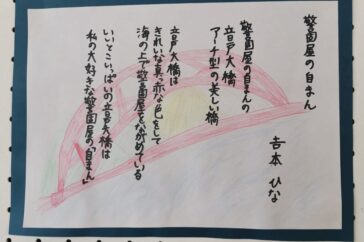 警固屋の自まん
吉本 ひな
警固屋の自まんの
音戸大橋
アーチ型の美しい橋
音戸大橋は
きれいな真っ赤な色をして
海の上で警固屋をながめている
いいとこいっぱいの音戸大橋は
私の大好きな警固屋の「自まん」